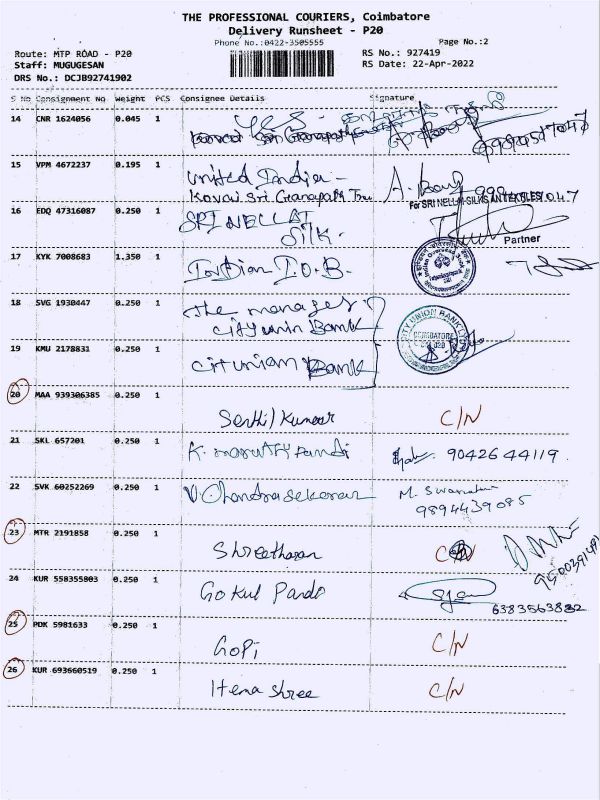 THE PROFESSIONAL COURIERS, Coimbatore
Delivery Runsheet - P20
Phone No.:0422-3505555
Page No.:2
Route: MTP ROAD - P20
RS No.: 927419
Staff: MUGUGESAN
RS Date: 22-Apr-2022
DRS No.: DCJB92741902
S No Consignment No Weight PCS Consignee Details Signature
14 CNR 1624056 0.045 1
15 VPM 4672237 0.195 1 United India -
Kovai Sri Ganapathi
16 EDQ 47316087 0.250 1 SRI NELLAI
SILK.
For SRI NELLAI SILKS AN TEXTILES
Partner
17 KYK 7008683 1.350 1 Indian I.O.B.
Indian Overseas Bank
18 SVG 1930447 0.250 1 The manager.
City unin Bank
CITY UNION BANK
COIMBATORE
19 KMU 2178831 0.250 1 cit unian Bank
20 MAA 939306385 0.250 1 Senthil Kumar C/N
21 SKL 657201 0.250 1 K. maruthi Pandi 90426 44119.
22 SVK 60252269 0.250 1 V. Chandrasekeran M.
9894439085
23 MTR 2191858 0.250 1 Shreetharan C/N
24 KUR 558355803 0.250 1 Gokul Pando
25 PDK 5981633 0.250 1 Gopi C/N
26 KUR 693660519 0.250 1 Hema shree C/N